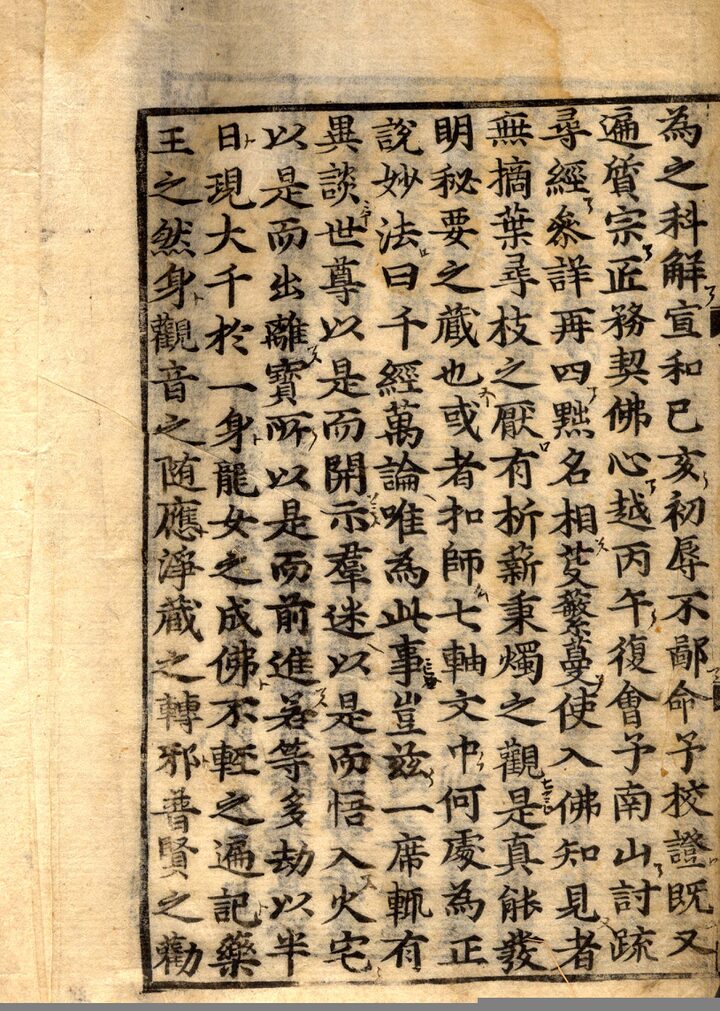 為之科解宣和已亥初辱不鄙命予校證既又
遍質宗匠務契佛心越丙午復會予南山討疏
尋經叅詳再四點名相芟蘩蔓使入佛知見者
無摘葉尋枝之厭有析薪秉燭之觀是真能發
明秘要之藏也或者扣師七軸文中何處為正
說妙法曰千經萬論唯為此事豈兹一席輒有
異談世尊以是而開示羣迷以是而悟入火宅
以是而出離寶所以是而前進若等多劫以半
日現大千於一身龍女之成佛不輕之遍記藥
王之然身觀音之随應淨藏之轉邪普賢之勸